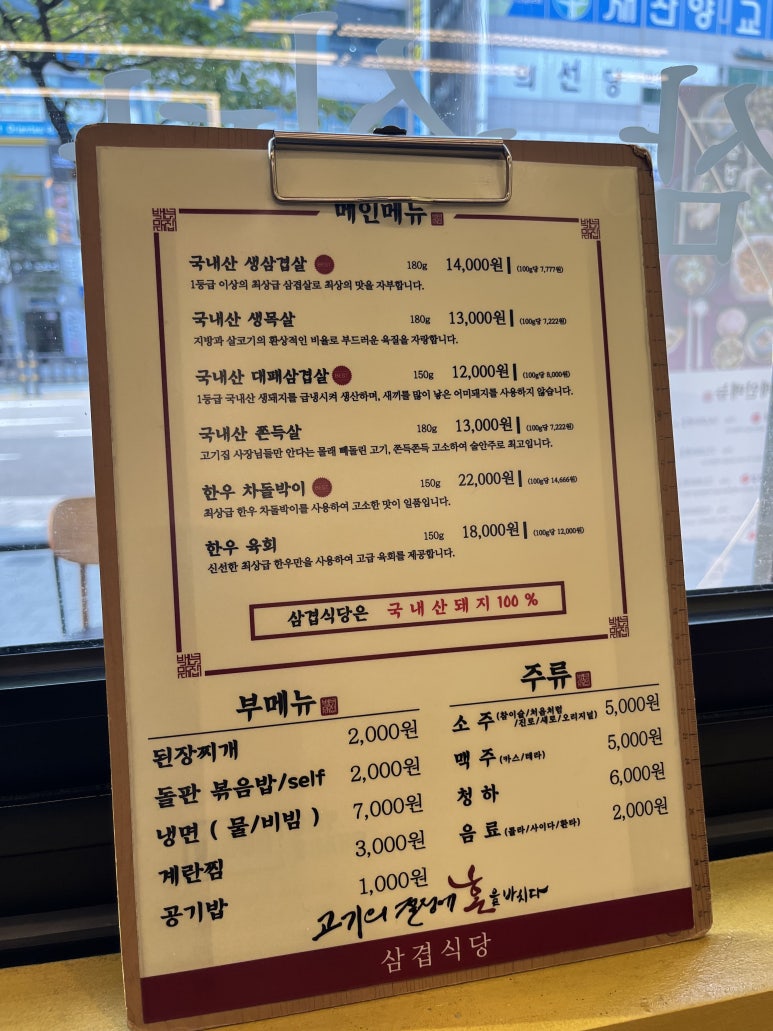 재산양교
희선당
삼
메인메뉴
국내산 생삼겹살 180g 14,000원 (100g당 7,777원)
1등급 이상의 최상급 삼겹살로 최상의 맛을 자부합니다.
국내산 생목살 180g 13,000원 (100g당 7,222원)
지방과 살코기의 환상적인 비율로 부드러운 육질을 자랑합니다.
국내산 대패삼겹살 150g 12,000원 (100g당 8,000원)
1등급 국내산 생돼지를 급냉시켜 생산하며, 새끼를 많이 낳은 어미돼지를 사용하지 않습니다.
국내산 쫀득살 180g 13,000원 (100g당 7,222원)
고기집 사장님들만 안다는 몰래 빼돌린 고기, 쫀득쫀득 고소하여 술안주로 최고입니다.
한우 차돌박이 150g 22,000원 (100g당 14,666원)
최상급 한우 차돌박이를 사용하여 고소한 맛이 일품입니다.
한우 육회 150g 18,000원 (100g당 12,000원)
신선한 최상급 한우만을 사용하여 고급 육회를 제공합니다.
삼겹식당은 국내산돼지 100 %
부메뉴
된장찌개 2,000원
돌판 볶음밥/self 2,000원
냉면 ( 물/비빔 ) 7,000원
계란찜 3,000원
공기밥 1,000원
주류
소 주 (참이슬/처음처럼/진로/새로/오리지널) 5,000원
맥 주 (카스/테라) 5,000원
청 하 6,000원
음 료 (콜라/사이다/환타) 2,000원
고기의 열정에 혼을 바치다
삼겹식당